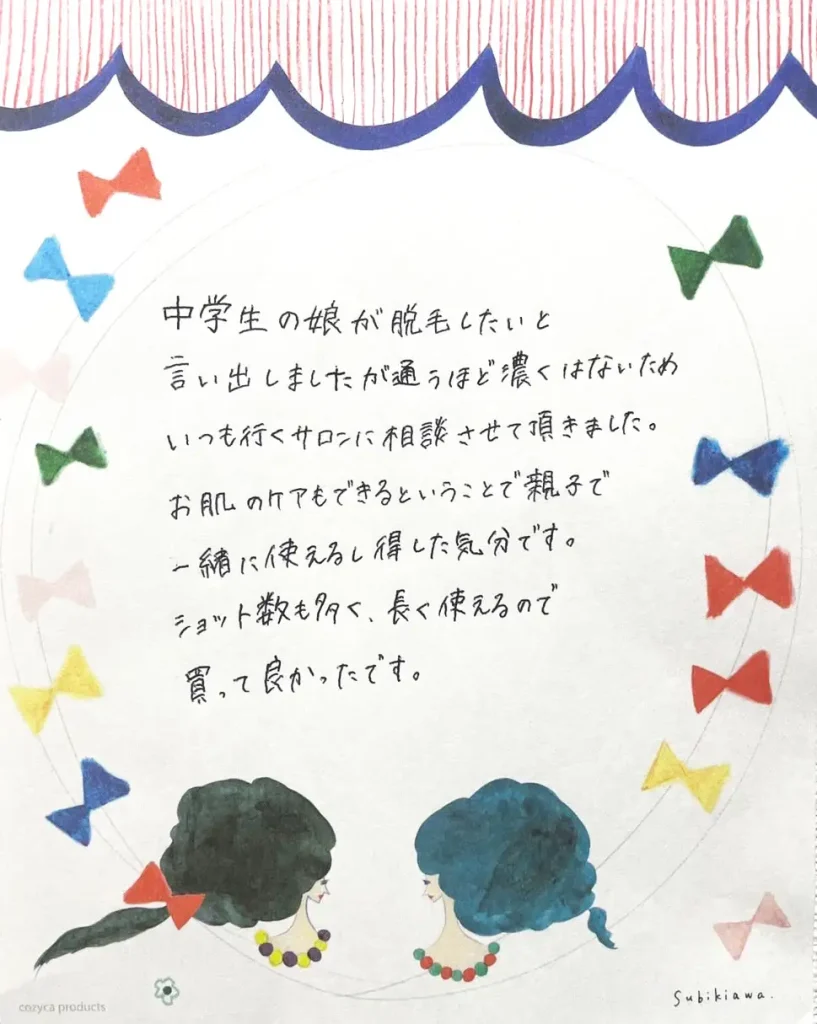 中学生の娘が脱毛したいと
言い出しましたが通うほど濃くはないため
いつも行くサロンに相談させて頂きました。
お肌のケアもできるということで親子で
一緒に使えるし得した気分です。
ショット数も多く、長く使えるので
買って良かったです。
cozyca products
Subikiawa.